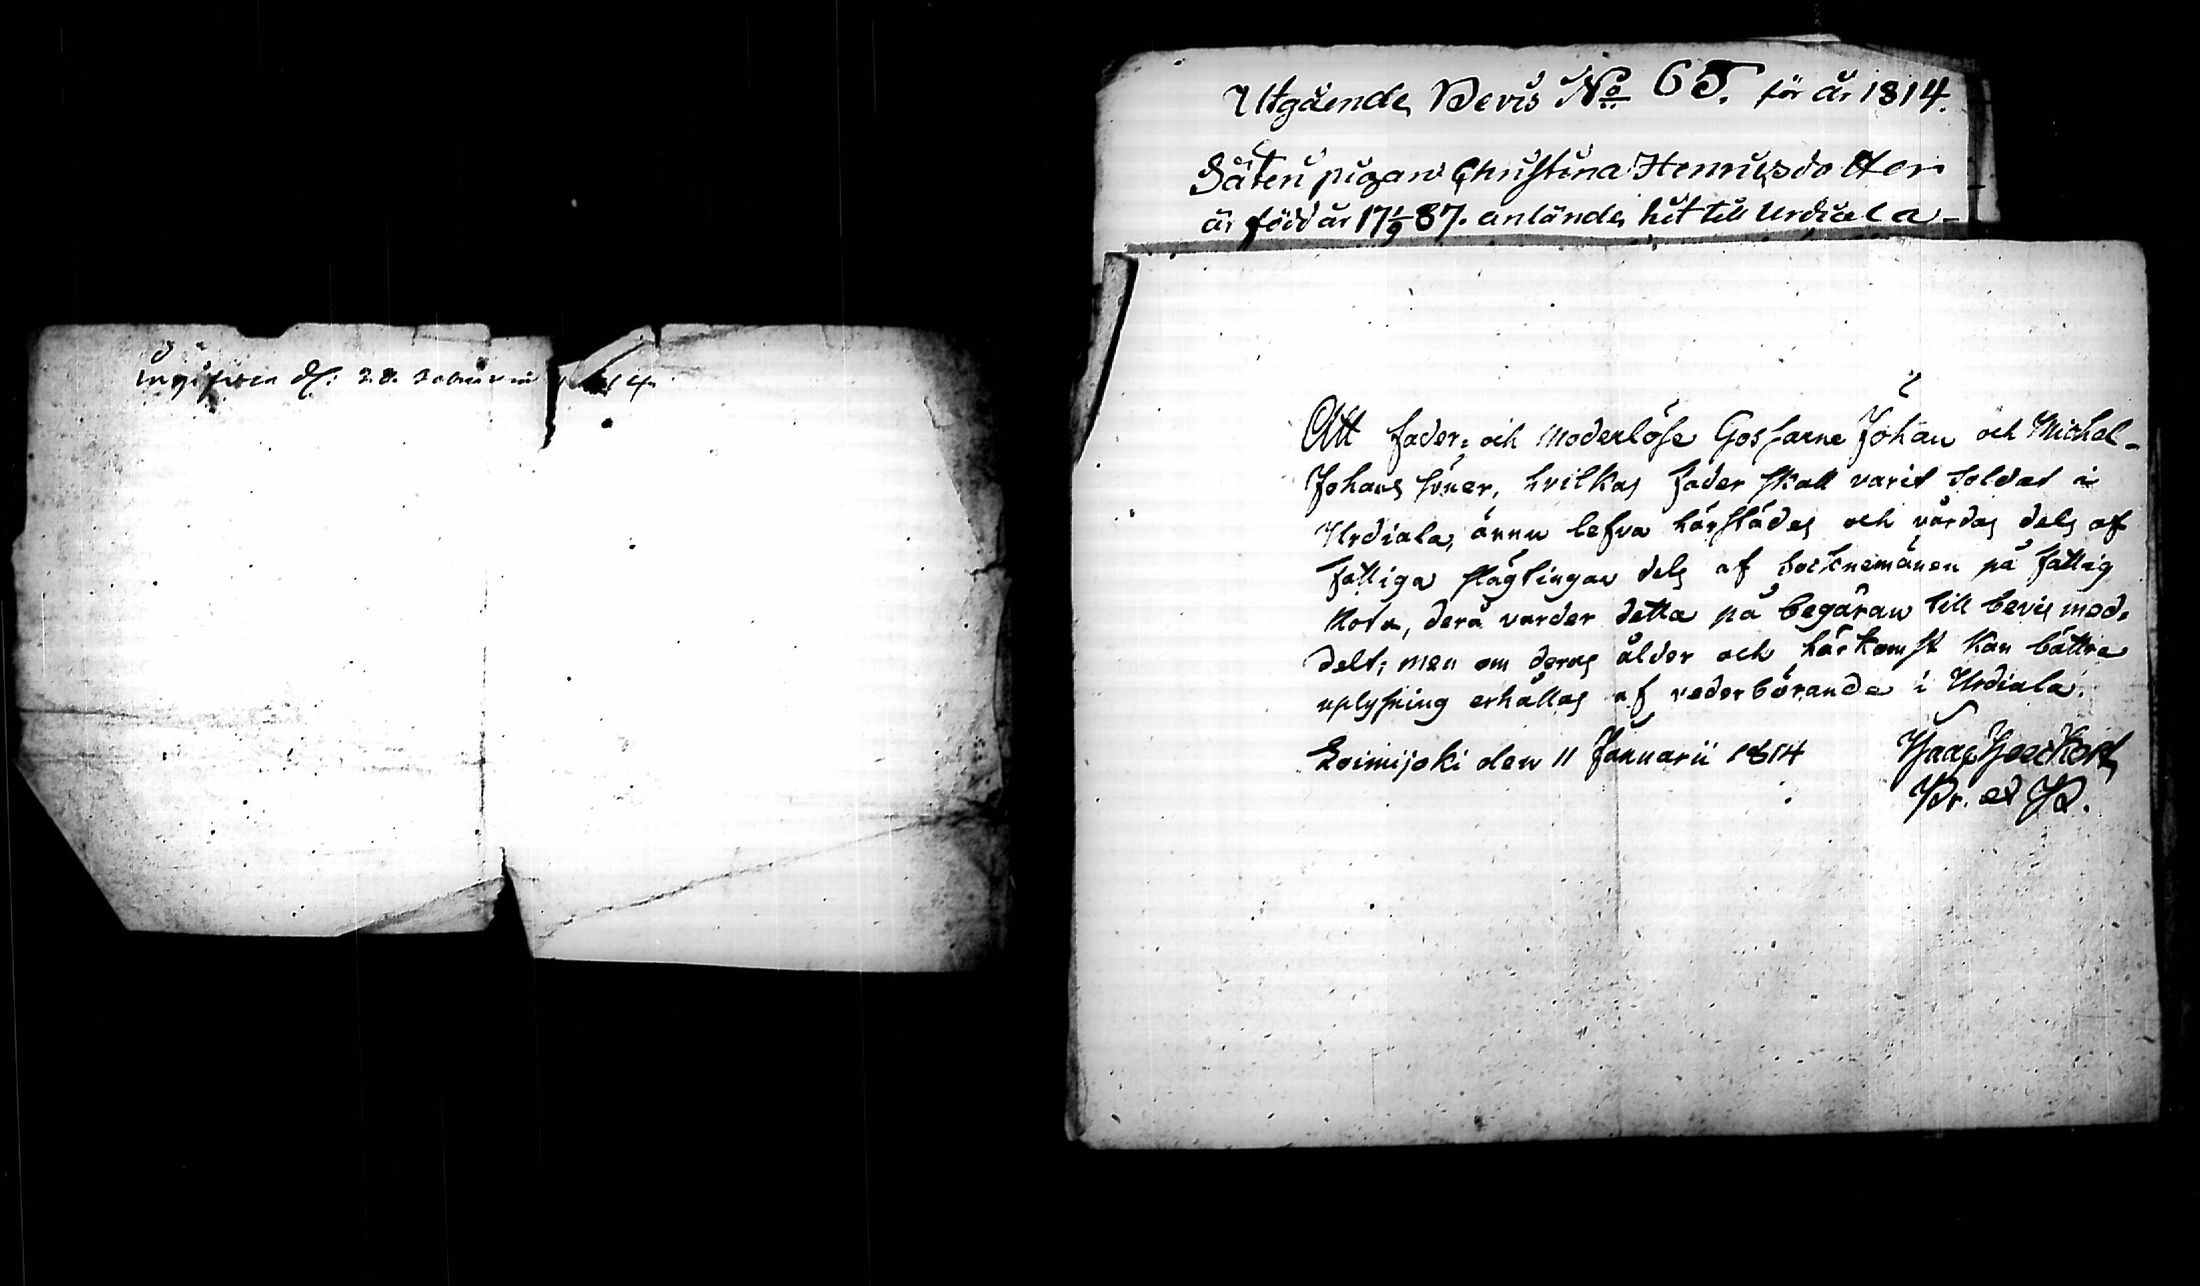 ingifven d: 28 Februarii 1814
Utgående Bevis No 65. för år 1814.
Säteri pigan Christina Henricsdotter
är född år 17 1/9 87. anlände hit till Urdiala
Att fader= och moderlöse Gossarne Johan och Michel
Johans söner, hvilkas fader skall varit soldat i
Urdiala, ännu lefva härstädes och vårdas dels af
fattiga slägtingar dels af socknemännen på fattig
Rota, derå varder detta på begäran till bevis med=
delt; men om deras ålder och härkomst kan bättre
uplysning erhållas af vederbörande i Urdiala.
Loimijoki den 11 Januarii 1814
Pr. et P.